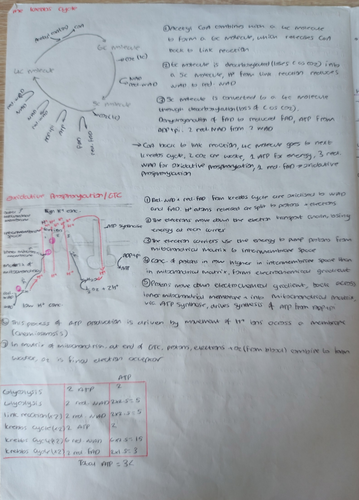 The Krebs Cycle
Acetyl CoA
6C molecule
4C molecule
5C molecule
① Acetyl CoA combines with a 4C molecule
to form a 6C molecule, which releases CoA
back to link reaction
② 6C molecule is decarboxylated (loss of CO2) into
a 5C molecule, H+ from link reaction reduces
NAD to red NAD
③ 5C molecule is converted to a 4C molecule
through decarboxylation (loss of CO2).
Dehydrogenation of FAD to reduced FAD, ATP from
ADP+Pi, 2 red NAD from 2 NAD
→ CoA back to link reaction, 4C molecule goes to next
Krebs cycle, 2 CO2 are waste, 1 ATP for energy, 3 red
NAD for oxidative phosphorylation, 1 red FAD → oxidative
phosphorylation
Oxidative Phosphorylation / ETC
ATP Synthase
ADP+Pi
ATP
low H+ conc
① Red NAD + red FAD from Krebs cycle are oxidised to NAD
and FAD, H atoms released → split to protons + electrons
② The electrons move down the electron transport chain, losing
energy at each carrier
③ The electron carriers use the energy to pump protons from
mitochondrial matrix to intermembrane space
④ Conc of protons is now higher in intermembrane space than
in mitochondrial matrix, forms electrochemical gradient
⑤ Protons move down electrochemical gradient, back across
inner mitochondrial membrane + into mitochondrial matrix
via ATP synthase, drives synthesis of ATP from ADP+Pi
⑥ This process of ATP production is driven by movement of H+ ions across a membrane
(chemiosmosis)
⑦ In matrix of mitochondrion, at end of ETC, protons, electrons + O2 (from blood) combine to form
water, O2 is final electron acceptor
ATP
Glycolysis 2 ATP 2
Glycolysis 2 red. NAD 2x2.5 = 5
Link reaction (x2) 2 red. NAD 2x2.5 = 5
Krebs cycle (x2) 2 ATP 2
Krebs cycle (x2) 6 red NAD 6x2.5 = 15
Krebs cycle (x2) 2 red FAD 2x1.5 = 3
Total ATP = 32